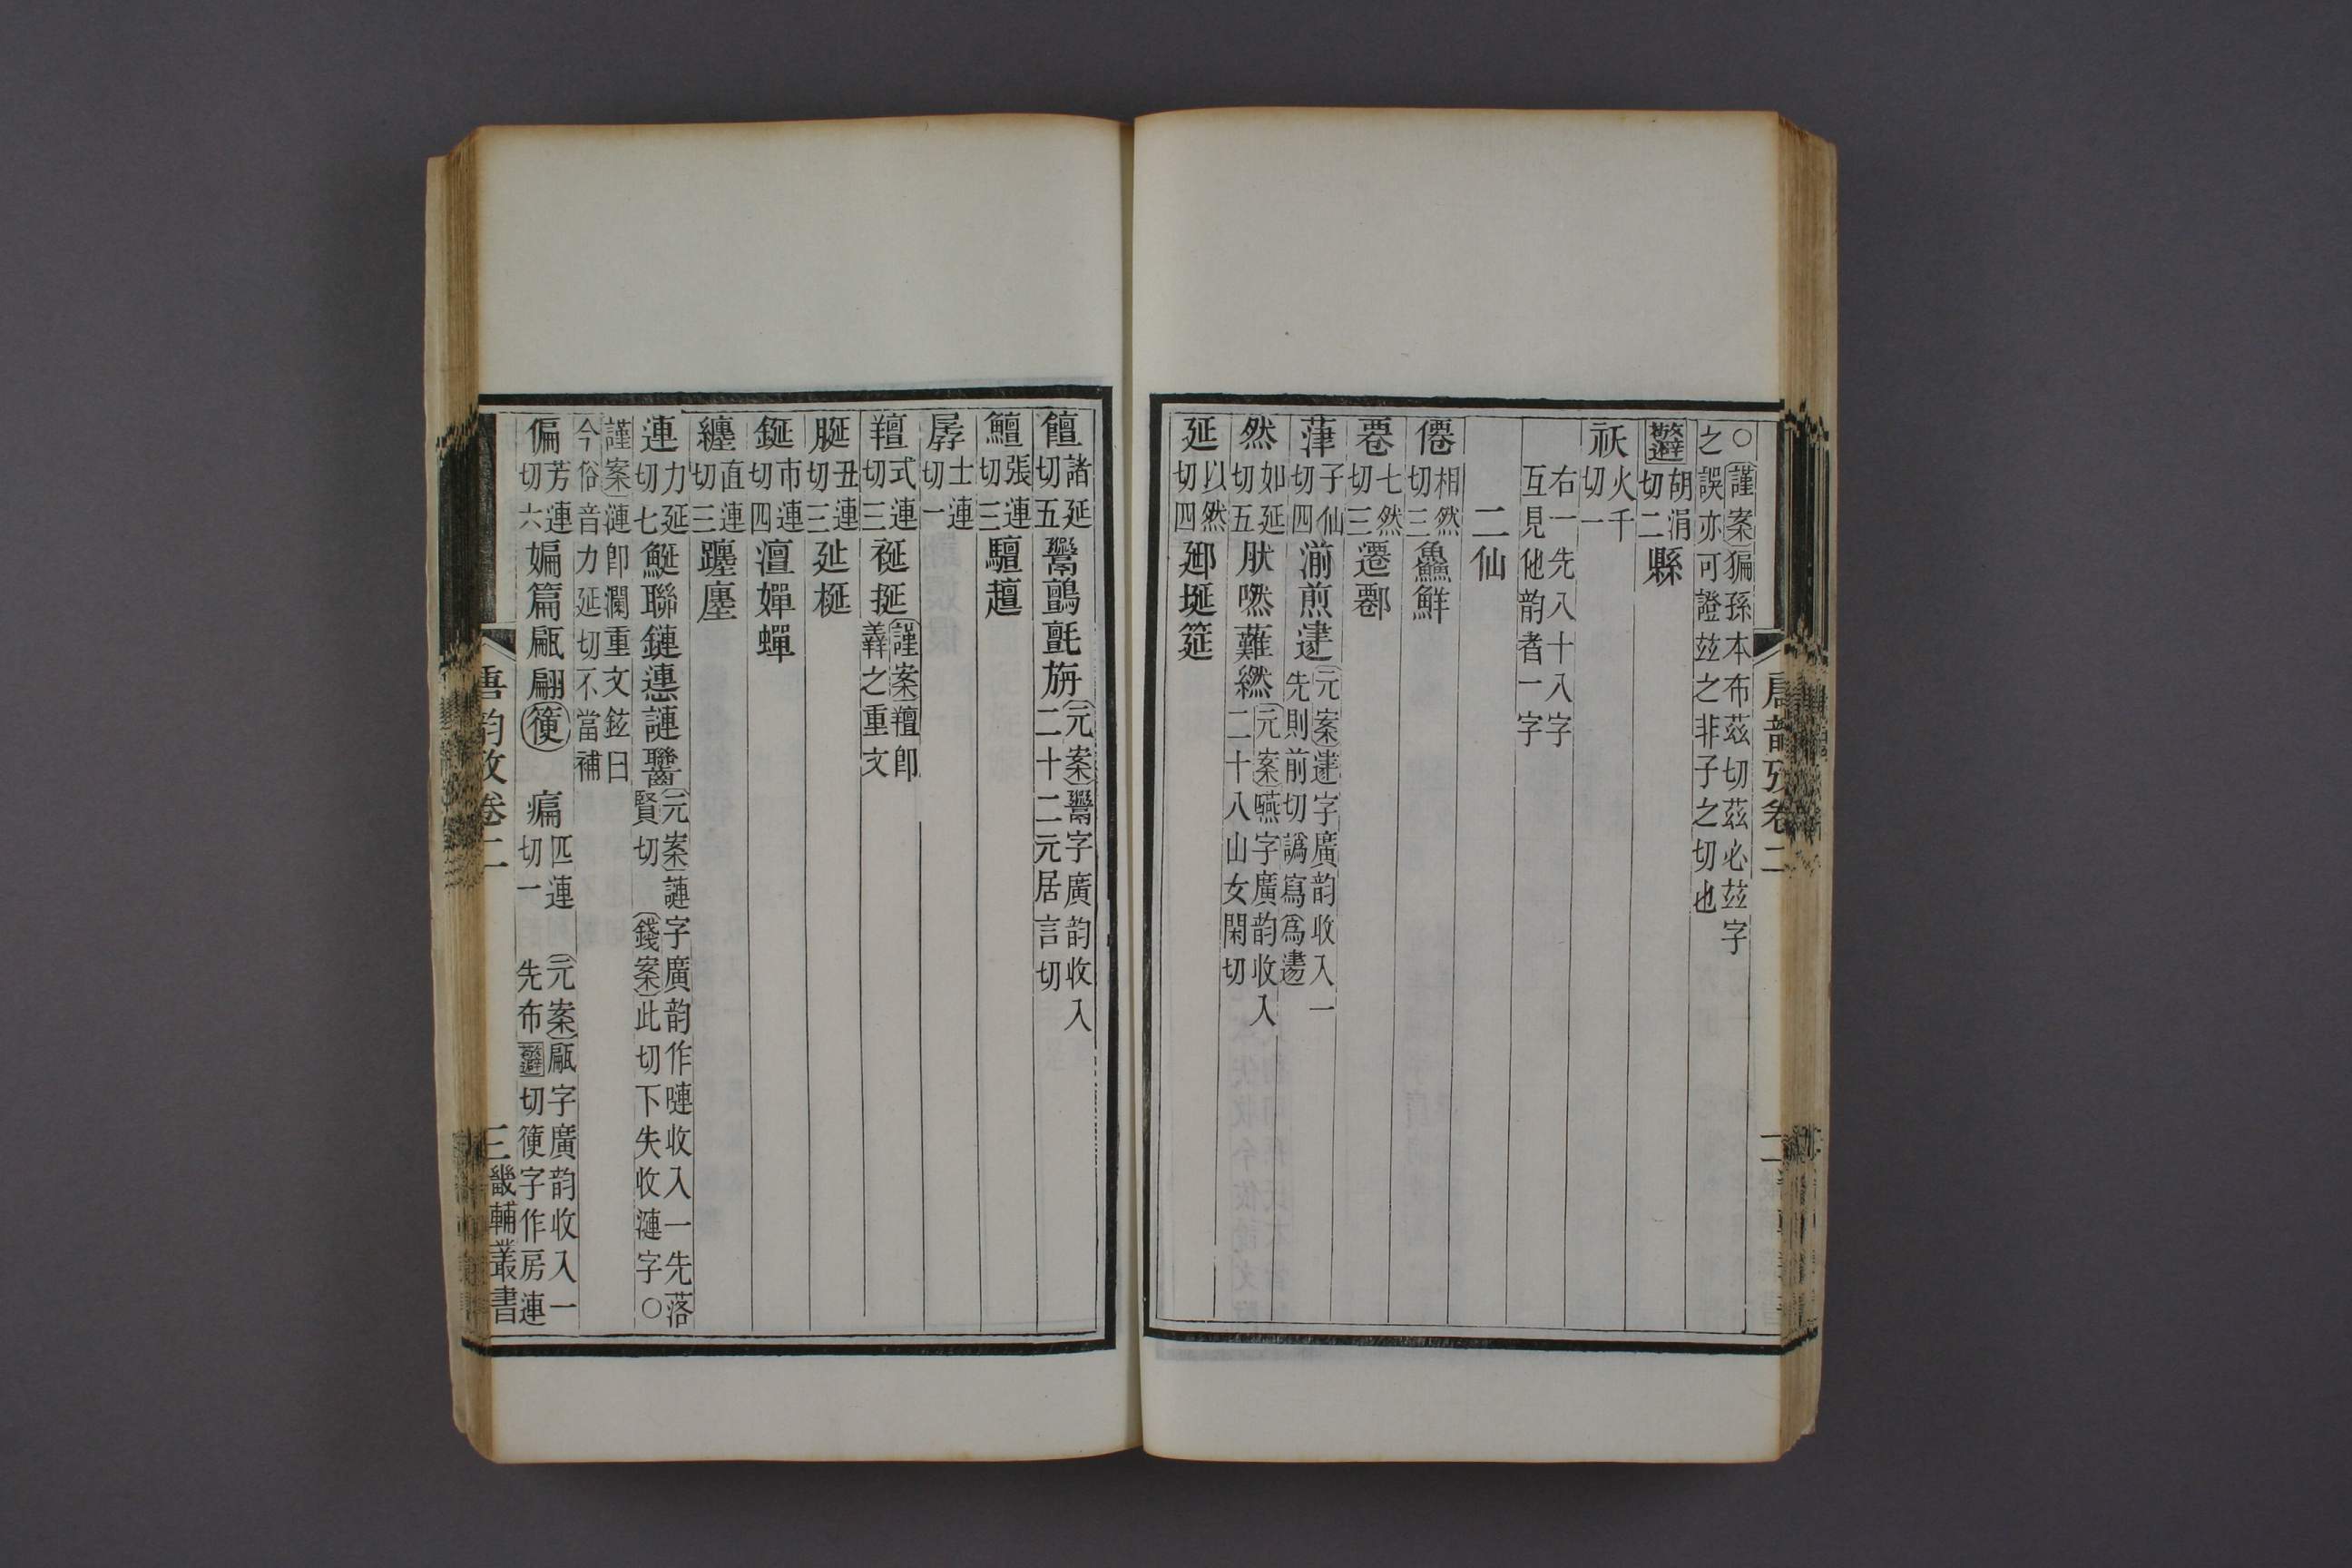 ○謹案猵孫本布茲切茲必茲字
之誤亦可證茲之非子之切也
胡涓切二縣
祅火千切一
右一先八十八字
互見他韵者一字
二仙
僊相然切三鱻鮮
䙴七然切三遷鄱
子仙切四湔煎
元案字廣韵收入一
先則前切譌寫爲
然如延切五肰嘫蘸繎
元案嘫字廣韵收入
二十八山女閑切
延以然切四郔埏筵
唐韵攷卷二
二
饘諸延切五鬻鸇氈旃
元案鬻字廣韵收入
二十二元居言切
鱣張連切三驙趲
孱士連切一
羶式連切三梴挻
謹案羶即
羴之重文
脠丑連切三㢟梴
鋋市連切四澶嬋蟬
纏直連切三躔廛
連力延切七鰱聯鏈漣謰
元案謰字廣韵作嗹收入一先落
賢切
錢案此切下失收漣字○
謹案漣即瀾重文鉉曰
今俗音力延切不當補
偏芳連切六媥篇㼐翩箯
痡匹連切一
元案㼐字廣韵收入一
先布切箯字作房連
唐韵攷卷二
三
畿輔叢書